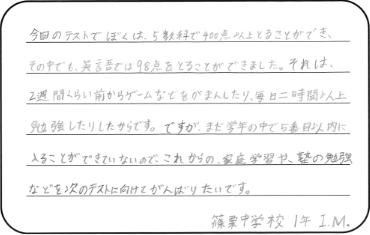 今回のテストでぼくは、5教科で400点以上とることができ、
その中でも、英語では98点をとることができました。それは、
2週間くらい前からゲームなどをがまんしたり、毎日二時間以上
勉強したりしたからです。ですが、まだ学年の中で5番目以内に
入ることができていないので、これからの、家庭学習や、塾の勉強
などを次のテストに向けてがんばりたいです。
篠栗中学校 1年 I.M.